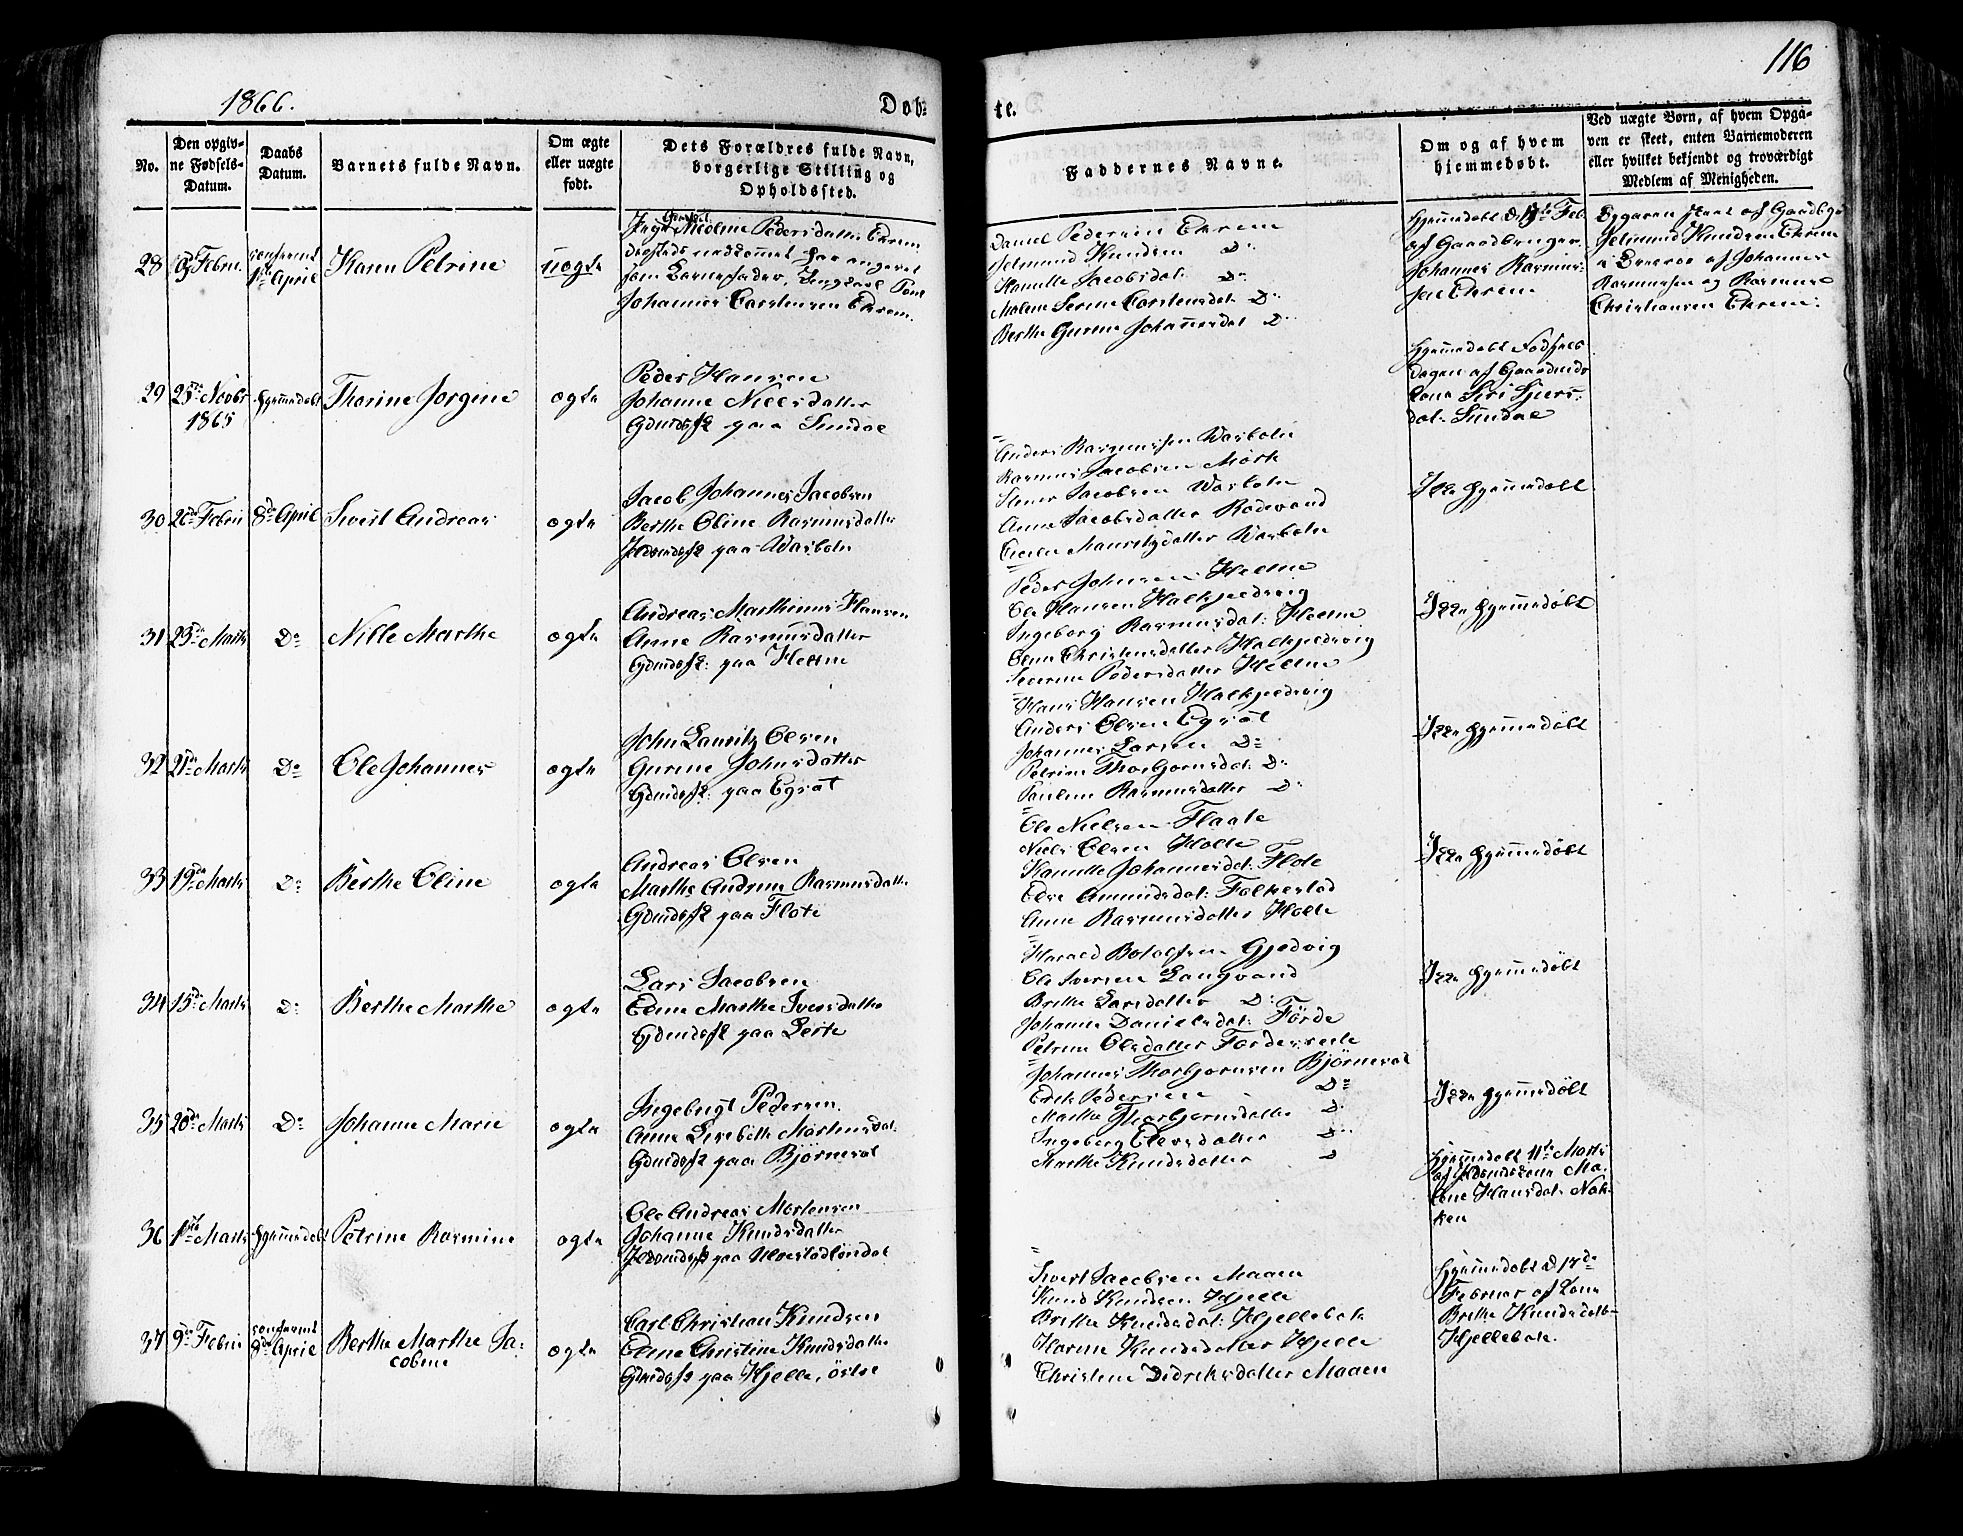 1866.
Døb-
te.
116
No.
Den opgiv-
ne Fødsels-
Datum.
Daabs
Datum.
Barnets fulde Navn.
Om ægte
eller uægte
født.
Dets Forældres fulde Navn,
borgerlige Stilling og
Opholdssted.
Faddernes Navne.
Om og af hvem
hjemmedøbt.
Ved uægte Børn, af hvem Opga-
ven er skeet, enten Barnemoderen
eller hvilket bekjendt og troværdigt
Medlem af Menigheden.
28
Febru.
confirmt
1ste April
Karen Petrine
uægte
Nicoline Pedersdatter Ekrem
som Barnefader, Ungkarl
Johannes Carstensen Ekrem.
Daniel Pedersen Ekrem
Jetmund Knudsen Do
Kanutte Jacobsdat: Do
Malene Serine Carstensdat: Do
Berthe Gurine Johannesdat Do
Hjemmedøbt d. Feb.
af Gaardbruger
Johannes Rasmus-
sen Ekrem
Opgaven skeet af Gaardbgr
Jetmund Knudsen Ekrem
af Johannes
Rasmussen og Rasmus
Christiansen Ekrem.
29
25de Novbr
1865
hjemmedøbt
Thorine Jørgine
ægte
Peder Hansen
Johanne Nielsdatter
Gdmdsfk paa Sundal
Hjemmedøbt Fødsels
dagen af Gaardmds
kone Siri Sjurs-
dat: Sundal
30
20de Febru
8de April
Sivert Andreas
ægte
Jacob Johannes Jacobsen
Berthe Oline Rasmusdatter
Huusmdsfk paa Warholm
Anders Rasmussen Warholm
Rasmus Jacobsen Mørk
Elias Jacobsen Warholm
Anne Jacobsdatter Rødevand
Mauritzdatter Warholm
Ikke hjemmedøbt
31
23de Marts
Do
Nille Marthe
ægte
Andreas Mathias Hansen
Anne Rasmusdatter
Gdmdsfk: paa Helsem
Peder Johnsen Helsem
Ole Hansen Halkjelsvig
Ingeborg Rasmusdat: Helsem
Oline Christensdatter Halkjelsvig
Severine Pedersdatter Helsem
Ikke hjemmedøbt
32
21de Marts
Do
Ole Johannes
ægte
John Lauritz Olsen
Gurine Johnsdatter
Gdmdsfk: paa Egsæt
Hans Hansen Halkjelsvig
Anders Olsen Egsæt
Johannes Larsen Do
Petrine Thorbjørnsdat: Do
Pauline Rasmusdatter Do
Ikke hjemmedøbt
33
19de Marts
Do
Berthe Oline
ægte
Andreas Olsen
Marthe Andrine Rasmusdatter
Gdmdsfk paa Flote
Ole Nielsen Flaate
Niels Olsen Holte
Kanutte Johannesdat: Flote
Else Amundsdat: Folkestad
Anne Rasmusdatter Holte
Ikke hjemmedøbt
34
15de Marts
Do
Berthe Marthe
ægte
Lars Jacobsen
Eline Marthe Iversdatter
Gdmdsfk paa Leite
Harald Botolfsen Gjedvig
Ole Iversen Langvand
Brithe Larsdatter Do
Johanne Danielsdat: Førde
Petrine Olsdatter
Ikke hjemmedøbt
35
20de Marts
Do
Johanne Marie
ægte
Ingebrigt Pedersen
Anne Lisebeth Mortensdat:
Gdmdsfk paa Bjørneset
Johannes Thorbjørnsen Bjørneset
Pedersen Do
Marthe Thorbjørnsdatter Do
Ingeborg Elevsdatter Do
Marthe Knudsdatter Do
Ikke hjemmedøbt
36
1ste Marts
hjemmedøbt
Petrine Rasmine
ægte
Ole Andreas Mortensen
Johanne Knudsdatter
Huusmdsfk paa Ulvestadløndal
Hjemmedøbt 11te Marts
af Huusmdskone Ma-
lene Hansdat: Nak-
ken
37
9de Febru
confirmt
8de April
Berthe Marthe Ja-
cobine
ægte
Carl Christian Knudsen
Eline Christine Knudsdatter
Gdmdsfk paa Hjelle, østre
Sivert Jacobsen Maaen
Knud Knudsen Hjelle
Brithe Knudsdat: Hjellebak
Karine Knudsdatter Hjelle
Christine Didriksdatter Maaen
Hjemmedøbt d 17de
Februar af kone
Brithe Knudsdatr
Hjellebak.